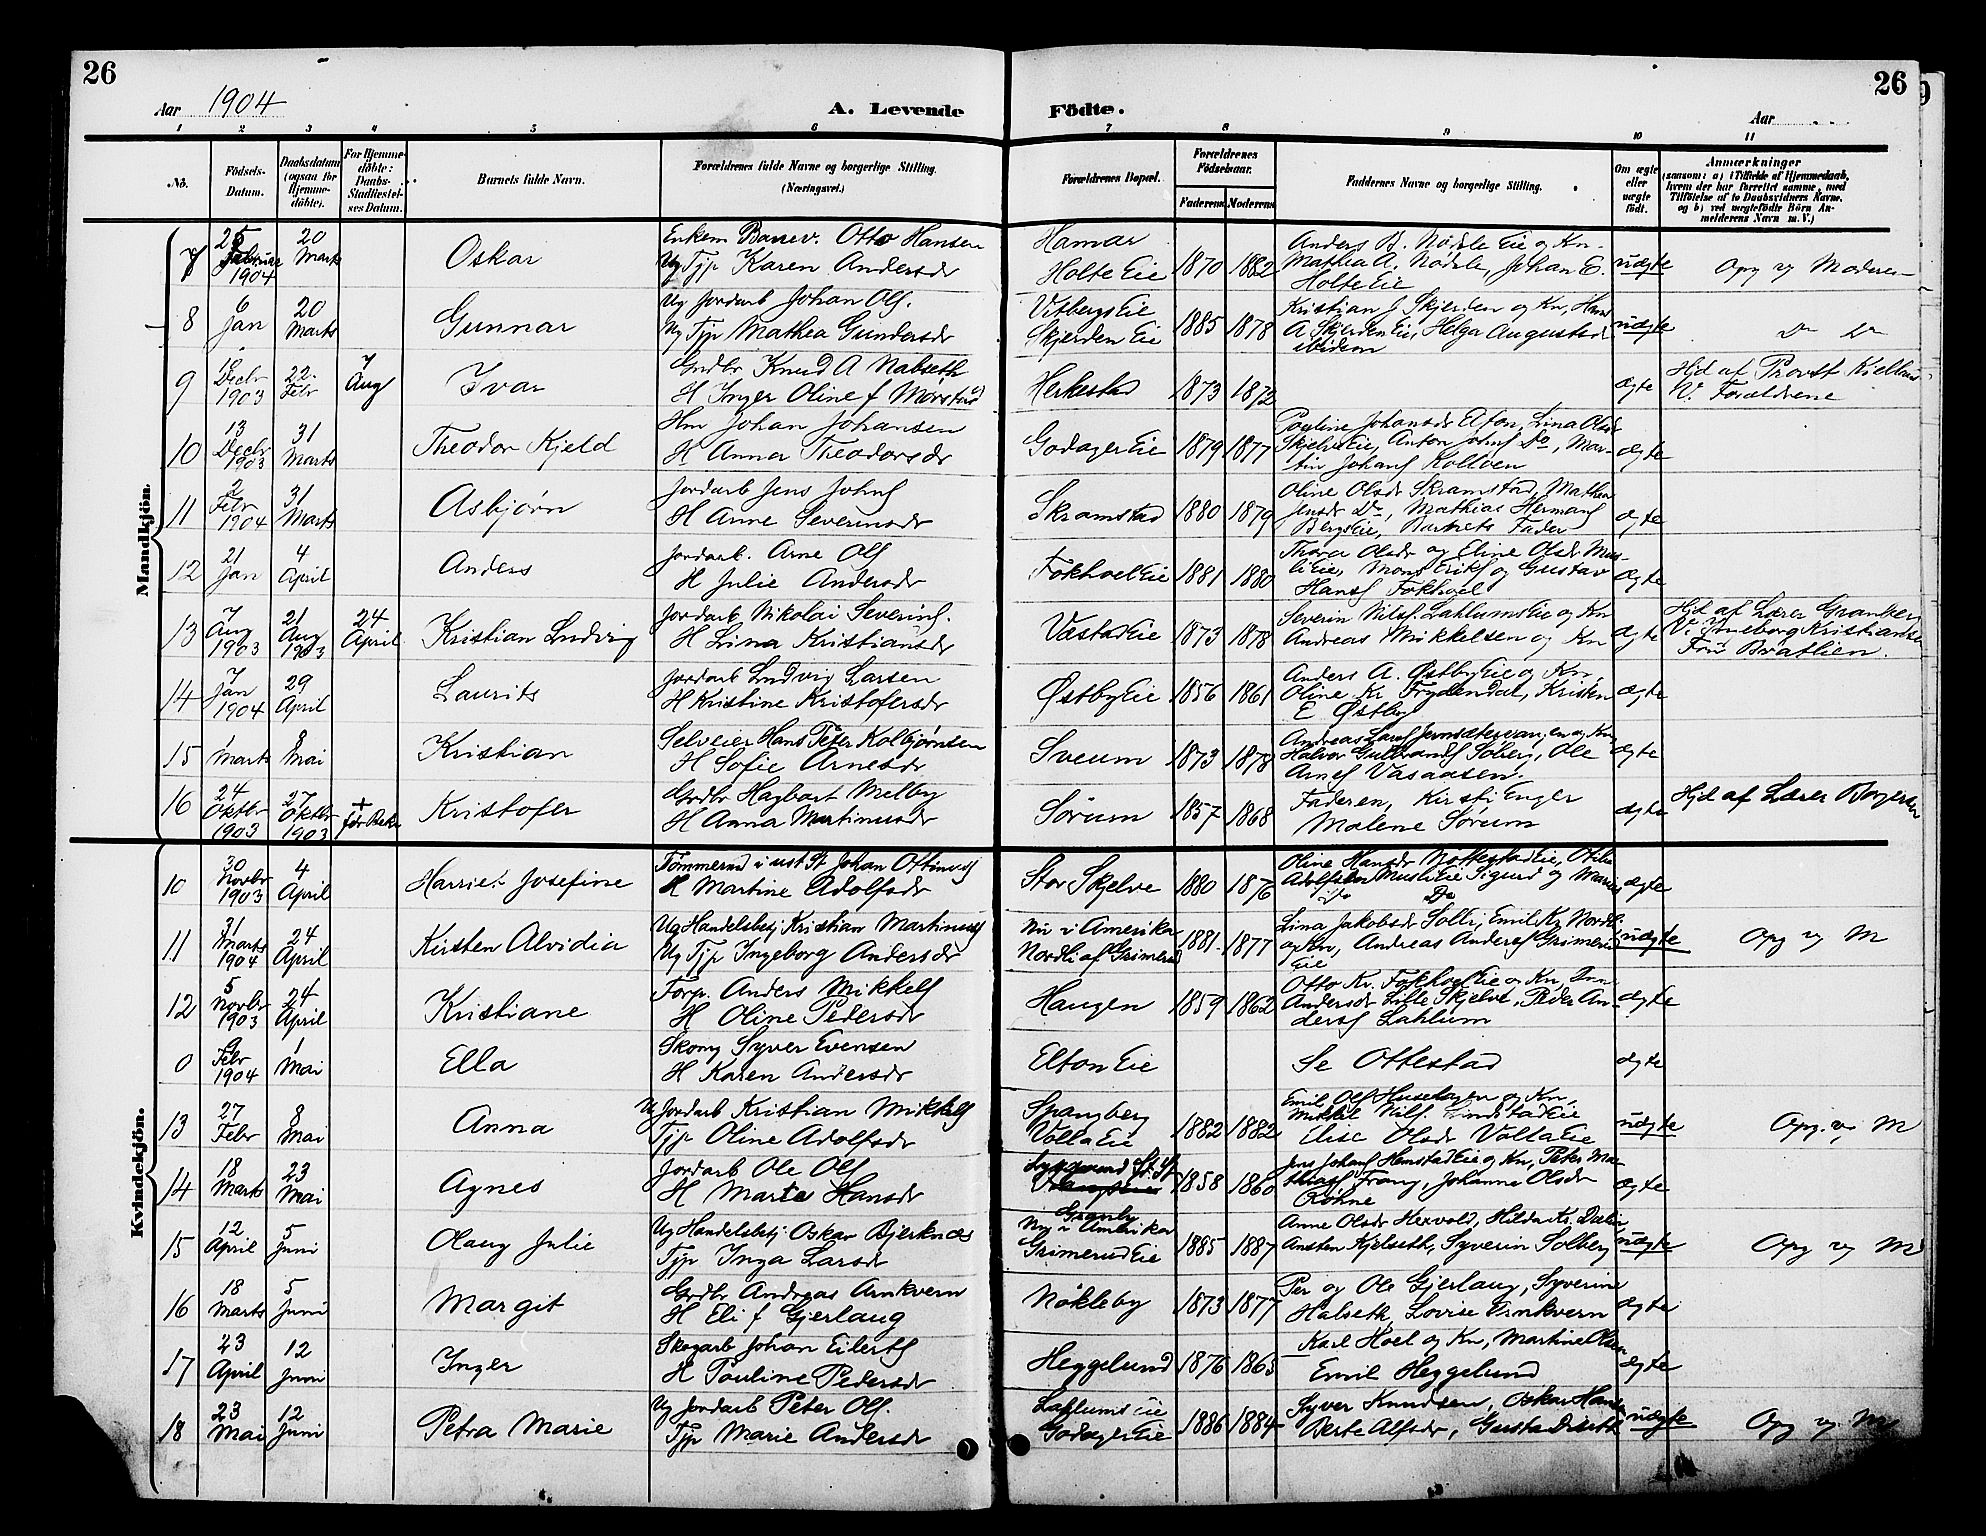 26
26
Aar 1904
A. Levende
Födte.
Aar
1 2 3 4 5 6 7 8 9 10 11
No.
Födsels-
Datum.
Daabsdatum
(ogsaa for
Hjemme-
döbte).
For Hjemme-
döbte:
Daabs-
Stadfæstel-
ses Datum.
Barnets fulde Navn.
Forældrenes fulde Navne og borgerlige Stilling.
(Næringsvei.)
Forældrenes Bopæl.
Forældrenes
Födselsaar.
Faderens Moderens
Faddernes Navne og borgerlige Stilling.
Om ægte
eller
uægte
födt.
Anmærkninger
(saasom: a) i Tilfælde af Hjemmedaab,
hvem der har forrettet samme, med
Tilföielse af to Daabsvidners Navne,
og b) ved uægtefödte Börn An-
melderens Navn m. V.)
Mandkjön.
7
25 Februar 1904
20 Marts
Oskar
Enkem Otto Hansen
Ug Tjp Karen Andersdr
Hamar
Holte Eie
1870 1882
Anders B. Nødsle Eie og Kn.
Mathea A. Nødsle, Johan E.
Holte Eie
uægte
Opg og Moderen
8
6 Jan
20 Marts
Gunnar
Ug Jordarb Johan Ols.
Ug Tjp Mathea Gundersdr
Vitbergs Eie
Skjerden Eie
1885 1878
Kristian J. Skjerden og Kn, Hans
A. Skjerden Eie, Helga Augustad
ibidem
uægte
Do Do
9
Decbr 1903
22 Febr
7 Aug
Ivar
Grdbr Knud A Nabseth
H Inger Oline f Mørstad
Herkestad
1873 1872
ægte
Hjd af Provst
V. Forældrene
10
13 Decbr 1903
31 Marts
Theodor Kjeld
Hm Johan Johansen
H Anna Theodorsdr
Godager Eie
1879 1877
Pauline Johansdr Elton, Lina Olsdr
Skjelve Eie, Anton Johns Do, Mar-
tin Johans Kolloen
ægte
11
2 Febr 1904
31 Marts
Asbjørn
Jordarb Jens Johns
H Anne Severinsdr
Skramstad
1880 1879
Oline Olsdr Skramstad, Mathea
Jensdr Do, Mathias Hermans
Bergs Eie, Barnets Fader
ægte
12
21 Jan
4 April
Anders
Jordarb. Arne Ols
H Julie Andersdr
Fokhol Eie
1881 1880
Thora Olsdr og Eline Olsdr Mus-
li Eie, Mons Eriks og Gustav
Hans Fokhol
ægte
13
7 Aug 1903
21 Aug 1903
24 April
Kristian Ludvig
Jordarb Nikolai Severins.
H Lina Kristiansdr
Væstad Eie
1873 1878
Severin Nils. Lahlums Eie og Kn
Andreas Mikkelsen og Kn
ægte
Hjd af Lærer
V. Ingeborg Kristiansen
Fru Bratlien.
14
7 Jan 1904
29 April
Laurits
Jordarb Ludvig Larsen
H Kristine Kristofersdr
Østby Eie
1856 1861
Anders A. Østby Eie og Kn,
Oline Kr Frydendal, Kristen
E Østby
ægte
15
1 Marts
8 Mai
Kristian
Selveier Hans Peter Kolbjørnsen
H Sofie Arnesdr
Sveum
1873 1878
Halvor Gulbrands Solberg, Ole
Arnes Vasaasen.
ægte
16
24 Oktbr 1903
27 Oktbr 1903
+
Kristofer
Grdbr Hagbart Melby
H Anna Martinusdr
Sørum
1857 1868
Faderen, Kirsti Enger
Malene Sørum
ægte
Hjd af Lærer Borgersen
Kvindekjön.
10
30 Novbr 1903
4 April
Harriet Josefine
Johan Ottinus
H Martine Adolfsdr
Stor Skjelve
1880 1876
Oline Hansdr Nøttestad Eie,
Adolfsdr Musli Eie Sigurd og Marius
Do
ægte
11
31 Marts 1904
24 April
Kirsten Alvidia
Ug Handelsbetj Kristian Martinus
Ug Tjp Ingeborg Andersdr
Nu i Amerika
Nordli af Grimerud
1881 1877
Lina Jakobsdr Solli, Emil Kr Nordli
og Kn, Andreas Anders Grimerud
Eie
uægte
Opg og M
12
5 Novbr 1903
24 April
Kristiane
Forp. Anders Mikkels
H Oline Pedersdr
Haugen
1859 1862
Otto Kr. Fokhol Eie og Kn,
Andersdr Lille Skjelve, Peder An-
ders Lahlum
ægte
0
9 Febr 1904
1 Mai
Ella
Skom Syver Evensen
H Karen Andersdr
Elton Eie
Se Ottestad
ægte
13
27 Febr
8 Mai
Anna
Ug Jordarb Kristian Mikkels
Tjp Oline Adolfsdr
Spangberg
Volla Eie
1882 1882
Emil Ols Husehagen og Kn,
Nils. Lindstad Eie
Elise Olsdr Volla Eie
uægte
Opg. og M
14
18 Marts
23 Mai
Agnes
Jordarb Ole Ols
H Marte Hansdr
1858 1860
Jens Johans Hemstad Eie og Kn, Peter Ma-
thias Frang, Johanne Olsdr
Røhne
ægte
15
12 April
5 Juni
Olaug Julie
Ug Handelsbetj. Oskar Bjerknes
Tjp Inga Larsdr
Granby
Ny i Amerika
Grimerud Eie
1885 1887
Anne Olsdr Hervold, Hilda Kr. Dælin,
Ansten Kjelseth, Syverin Solberg
uægte
Opg og M
16
18 Marts
5 Juni
Margit
Grdbr Andreas Arnkvern
H Eli f Gjerlaug
Nøkleby
1873 1877
Per og Ole Gjerlaug, Syverine
Halseth, Lovise Arnkvern
ægte
17
23 April
12 Juni
Inger
Skogarb Johan Eilerts
H Pauline Pedersdr
Heggelund
1876 1865
Karl Hoel og Kn, Martine Olsen
Emil Heggelund
ægte
18
23 Mai
12 Juni
Petra Marie
Ug Jordarb Peter Ols.
Tjp Marie Andersdr
Lahlums Eie
Godager Eie
1886 1884
Syver Knudsen, Oskar Hansen
Berte Alfsdr,
uægte
Opg og M